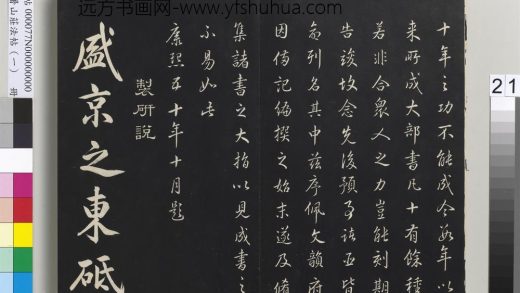 远方书画网-www.yfshuhua.com
帖 000077N000000000
山莊法帖(一) 冊
21
十年之功不能成今數年以
來所成大部書凡十有餘種
若非合衆人之力豈能刻期
告竣故念先後預事諸臣皆
命列名其中茲序佩文韻府
因備記編撰之始末遂及修
集諸書之大指以見成書之
不易如此
康熙五十年十月題
製研說
盛京之東砥